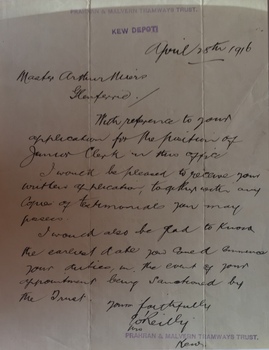 PRAHRAN & MALVERN TRAMWAYS TRUST.
KEW DEPOT
April 25th 1916
Master Arthur
Glenferrie
With reference to your
application for the position of
Junior Clerk in this office
I would be pleased to receive your
written application together with any
copies of testimonials you may
possess.
I would also be glad to know
the earliest date you could commence
your duties in the event of your
appointment being sanctioned by
the Trust
yours faithfully
O'Reilly
PRAHRAN & MALVERN TRAMWAYS TRUST.
Kew